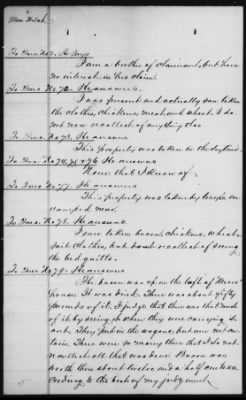 To Ques. No 2. He says
I am a brother of claimant, but have
no interest in his claim.
To Ques. No 72. He answers
I was present and actually saw taken
the clothes, chickens, meal and wheat. I do
not now recollect of anything else
To Ques. No 73. He answers
This property was taken in the daytime.
To Ques. No 74, 75 & 76 He answers
None that I know of.
To Ques. No 77. He answers
This property was taken by troops en-
camped near.
To Ques. No 78. He answers
I saw taken bacon, chickens, wheat,
suit clothes, but do not recollect of seeing
the bed quilts.
To Ques. No 79. He answers
The bacon was up in the loft of
house. It was dried. There was about fifty
pounds of it. I judge that there was that much
of it by seeing it when they were carrying it
out. They put in the wagons, but am not cer-
tain. There were so many there that I do not
recollect all that was done. Bacon was
worth then about twelve and a half cents ac-
cording to the best of my judgment